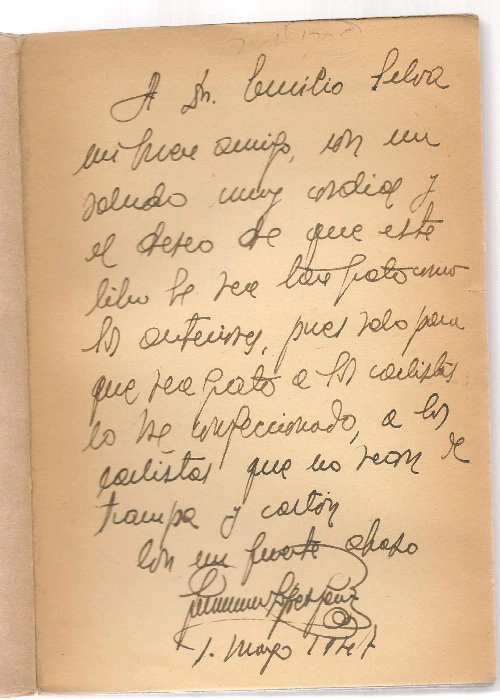 A Dn. Emilio Selva
mi buen amigo, con un
saludo muy cordial y
el deseo de que este
libro le sea tan grato como
los anteriores, pues solo para
que sea grato a los carlistas
lo he confeccionado, a los
carlistas que no sean de
trampa y cartón
Con un fuerte abrazo
1. Mayo